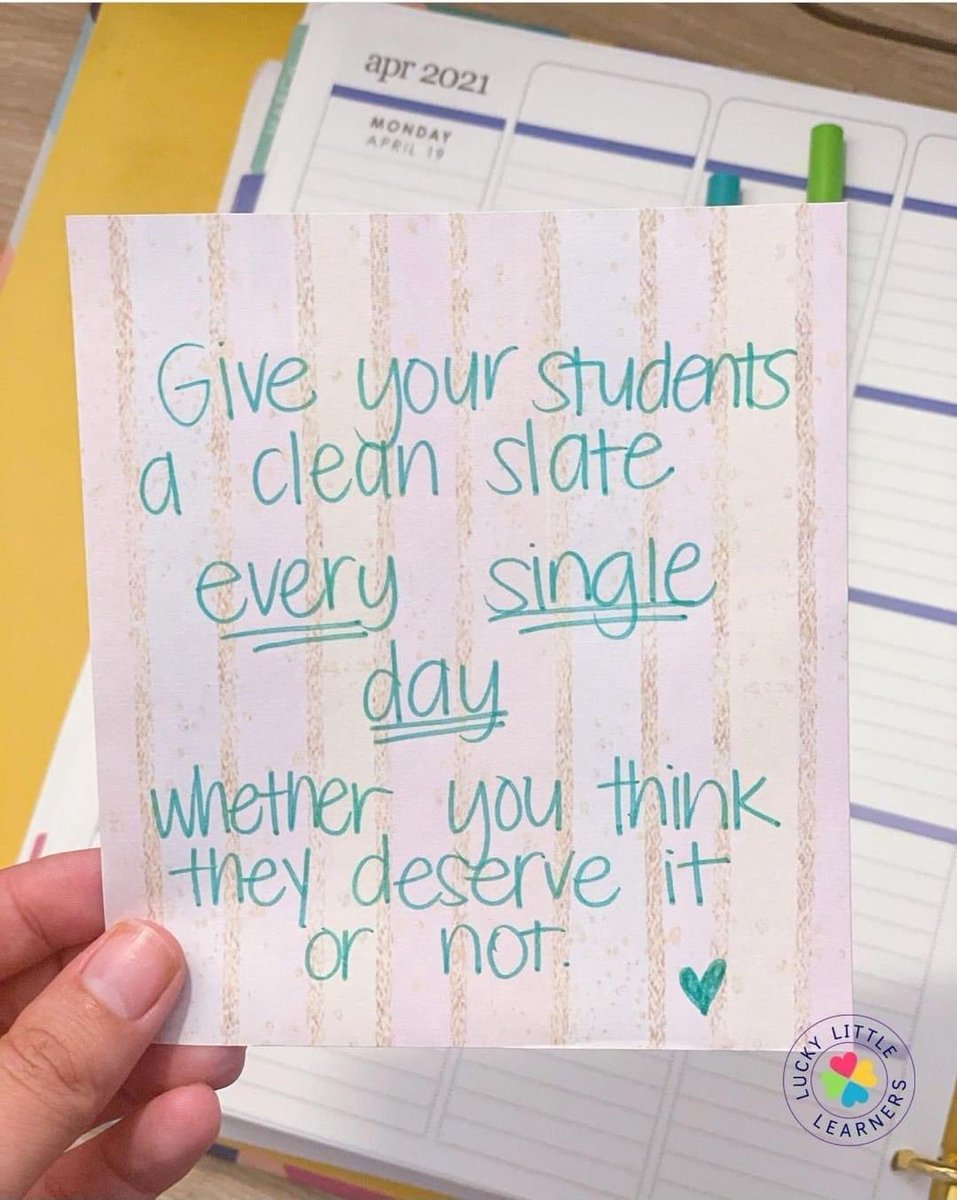 apr 2021
MONDAY
APRIL 19
Give your students
a clean slate
every single
day
whether you think
they deserve it
or not.
LUCKY LITTLE
LEARNERS